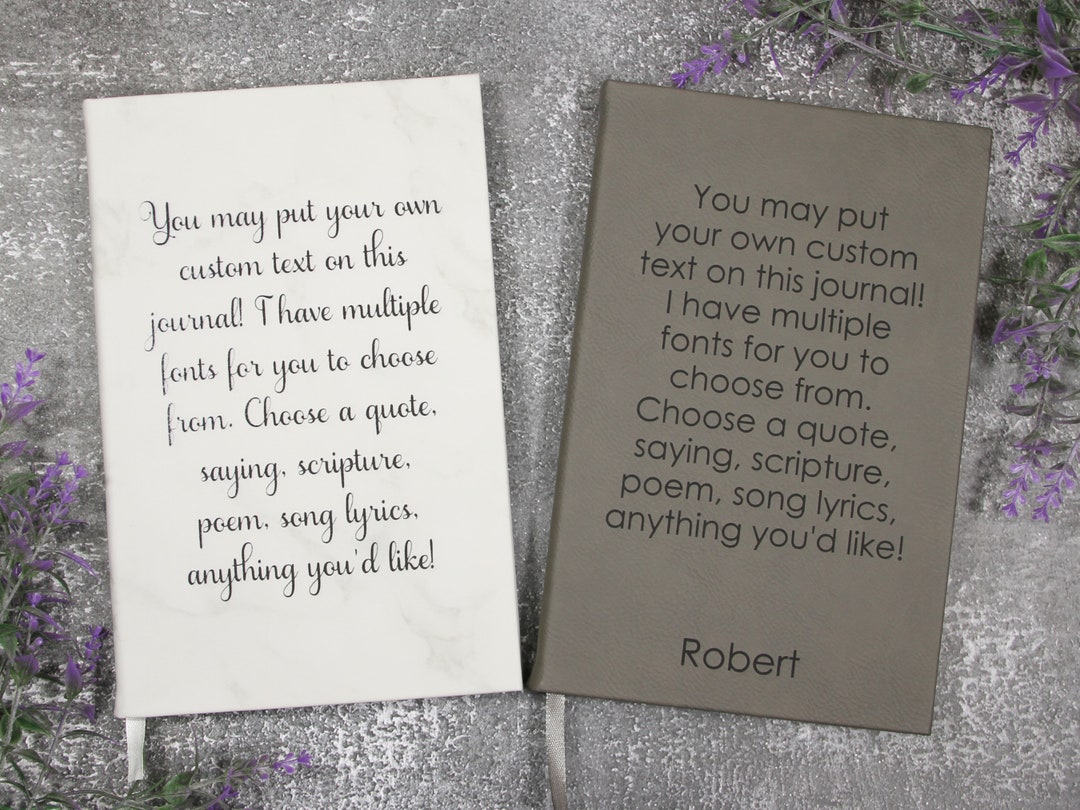 You may put your own
custom text on this
journal! I have multiple
fonts for you to choose
from. Choose a quote,
saying, scripture,
poem, song lyrics,
anything you'd like!
You may put
your own custom
text on this journal!
I have multiple
fonts for you to
choose from.
Choose a quote,
saying, scripture,
poem, song lyrics,
anything you'd like!
Robert